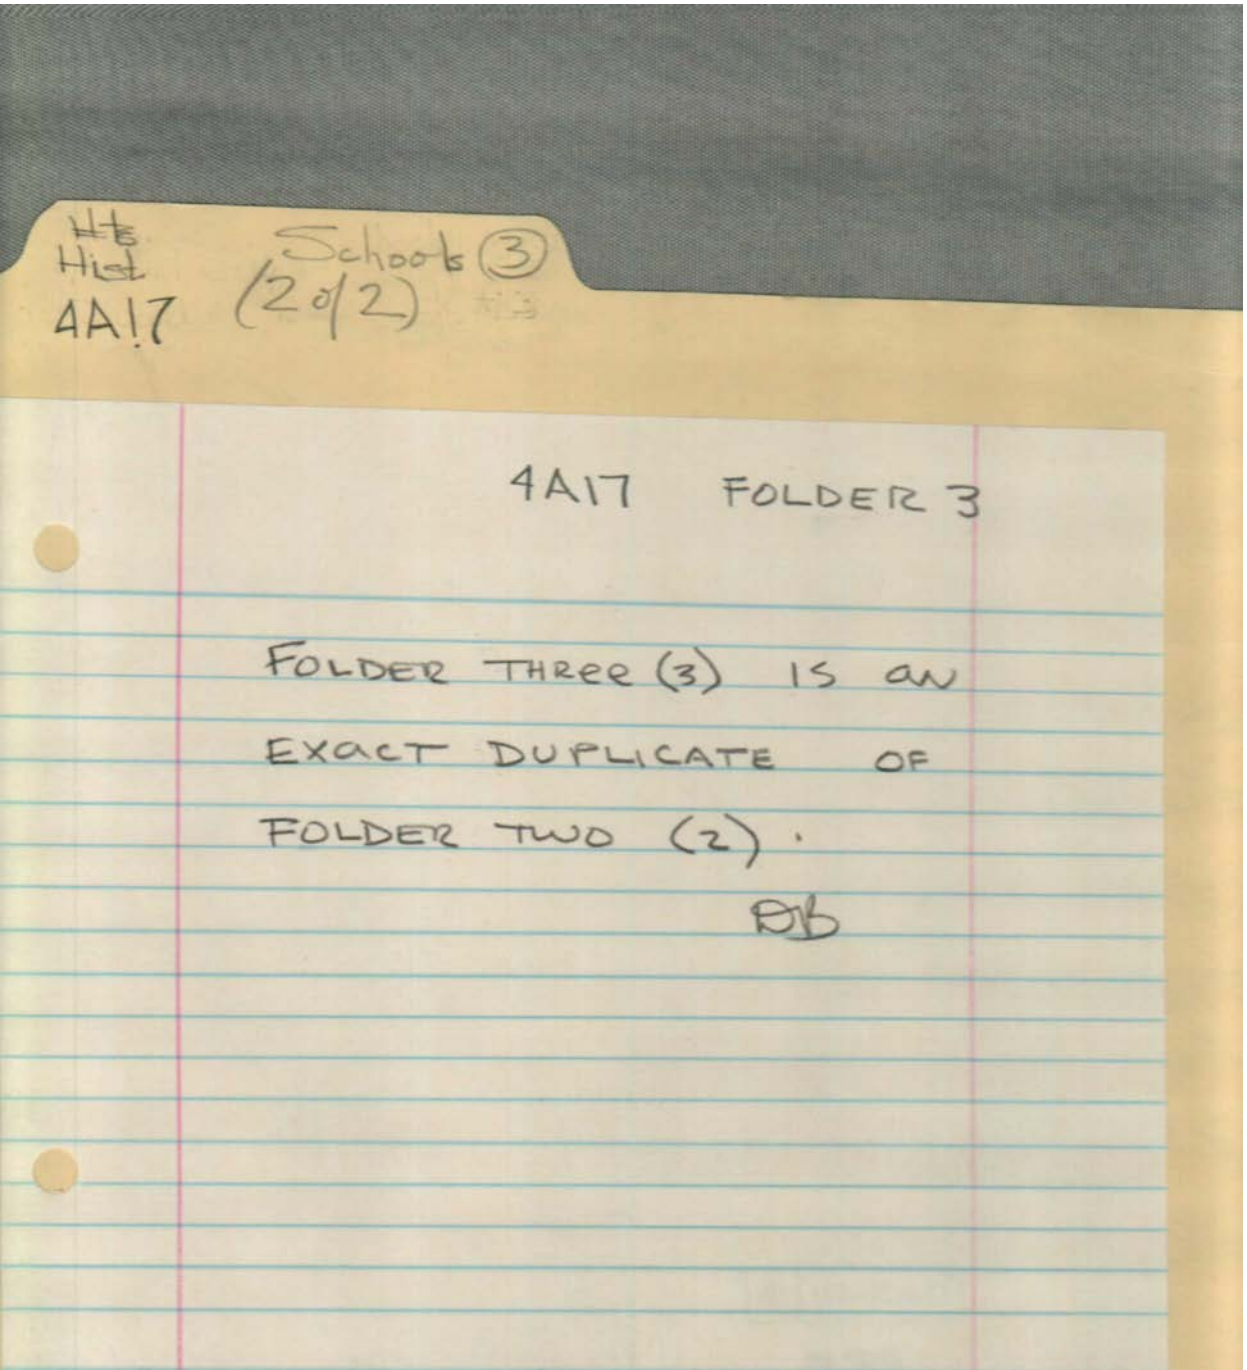 Hts
Hist
Schools 3
4A17
(2 of 2)
#3
4A17 FOLDER 3
FOLDER THRee (3) IS aN
EXacT DUPLICATE OF
FOLDER TWO (2).
DB